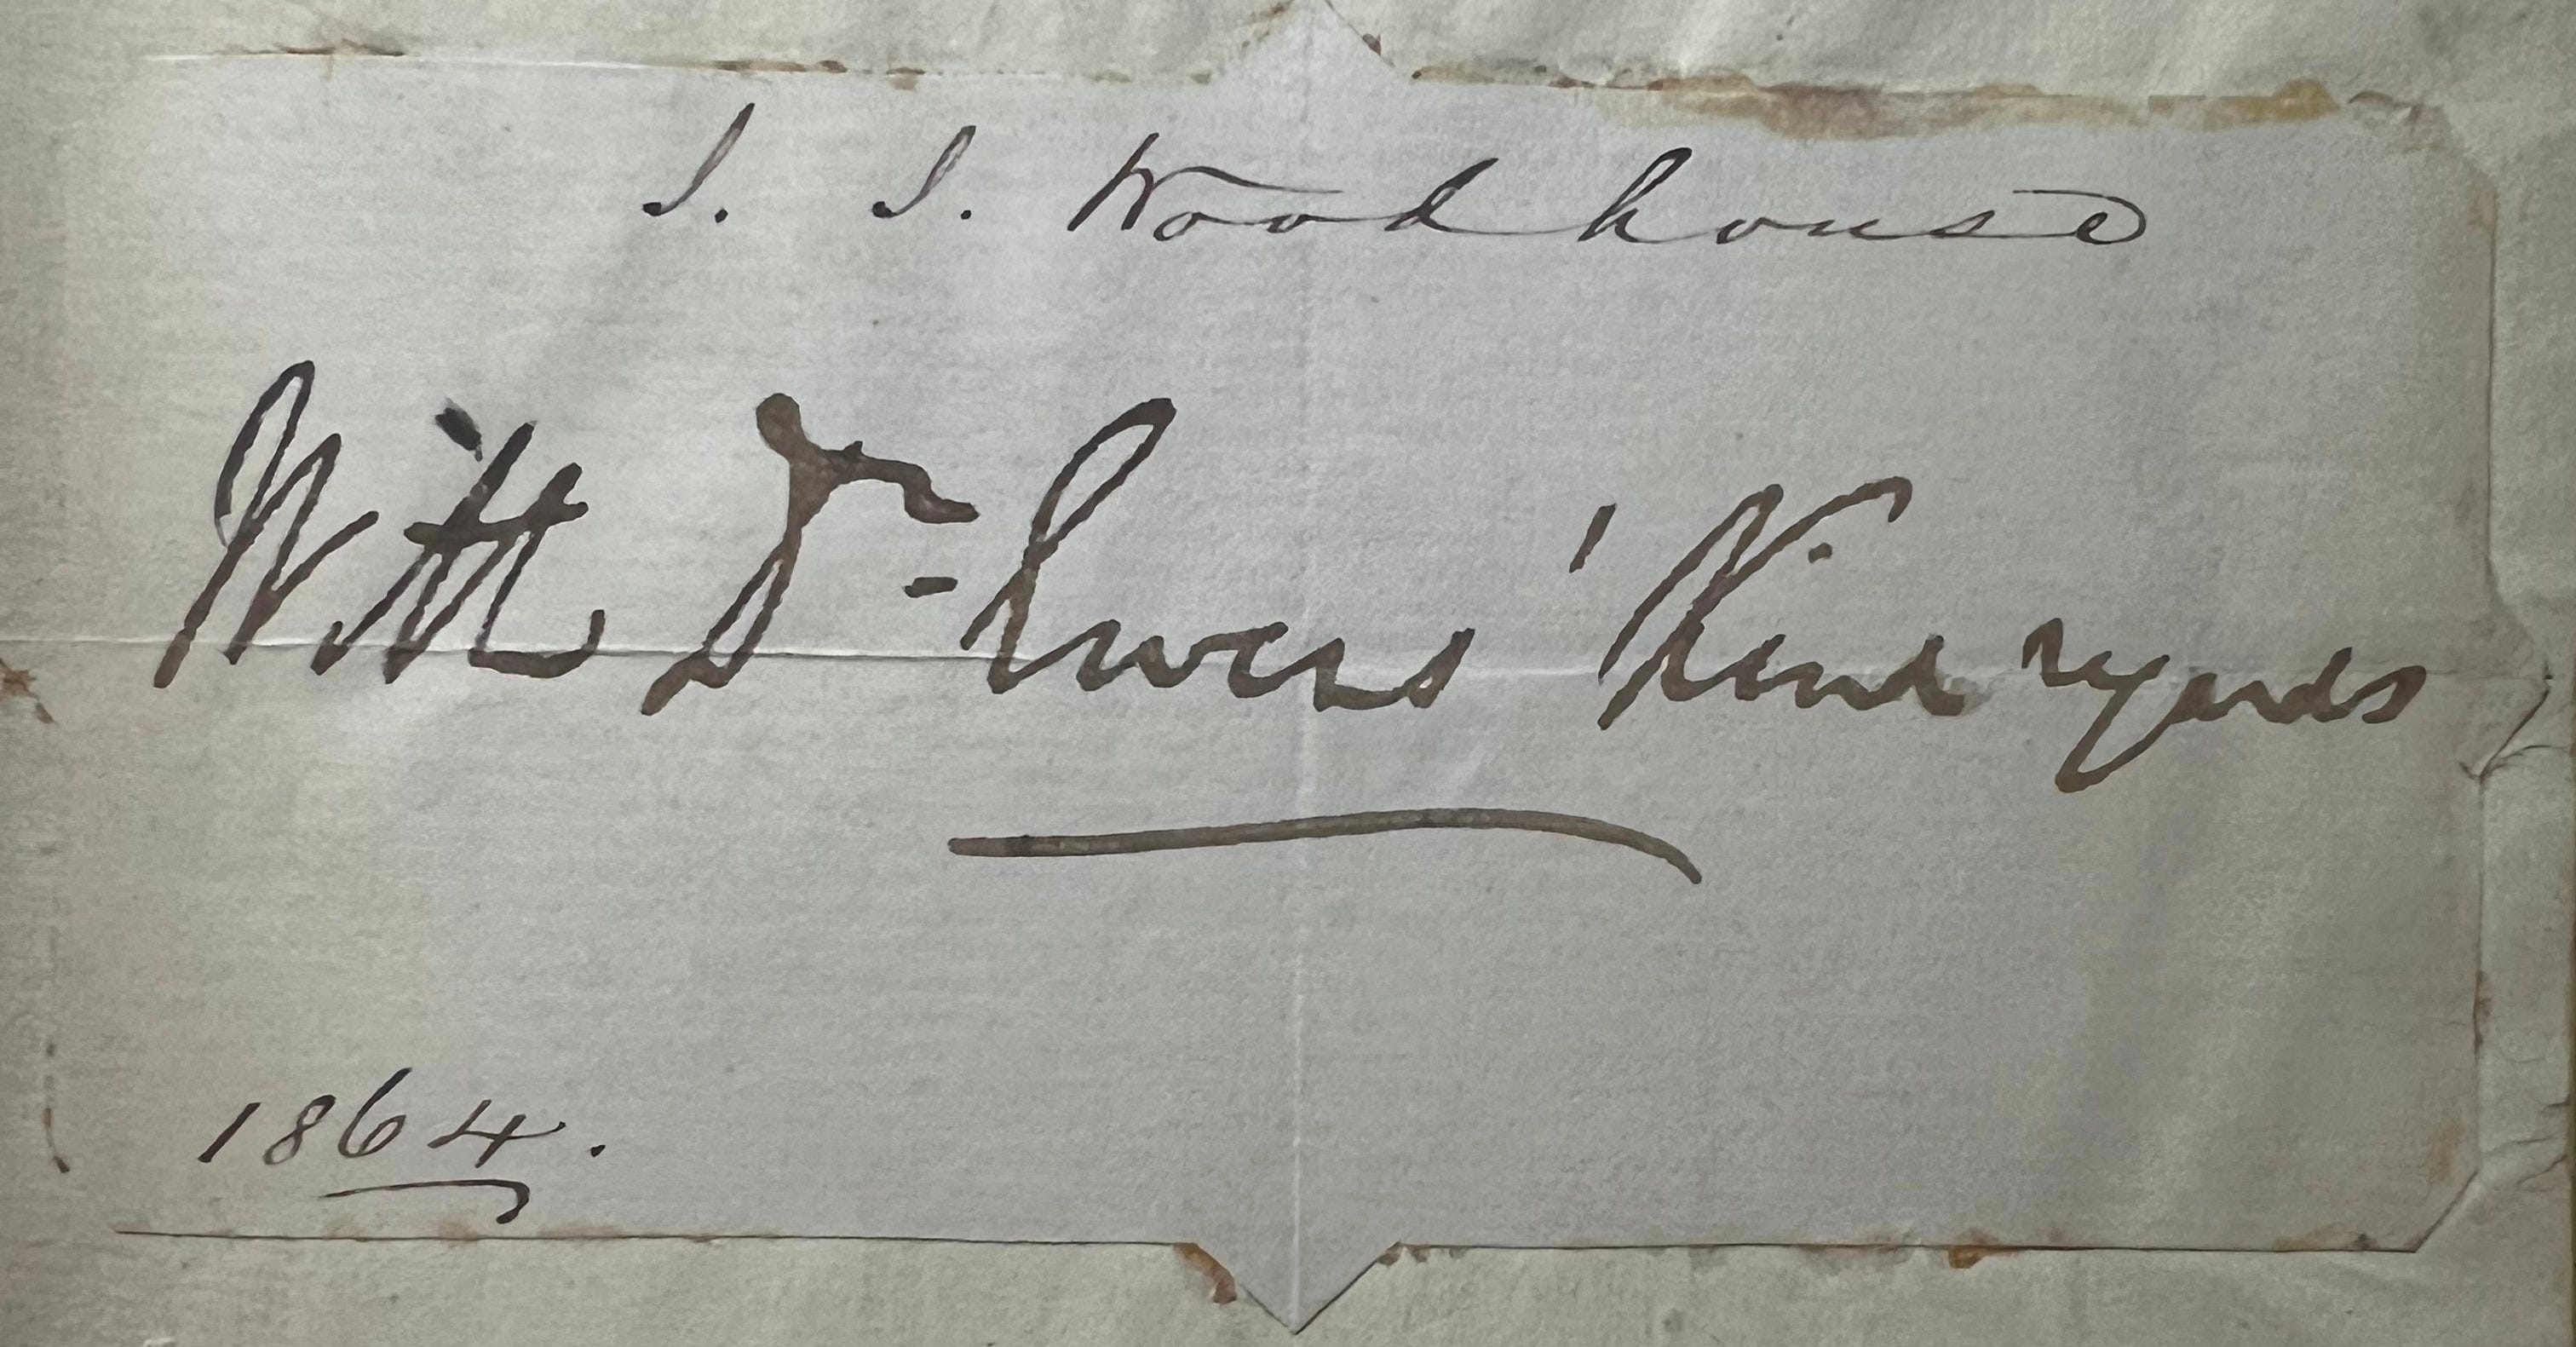 S. S. Woodhouse
With Dr- Rivers' Kind regards
1864.